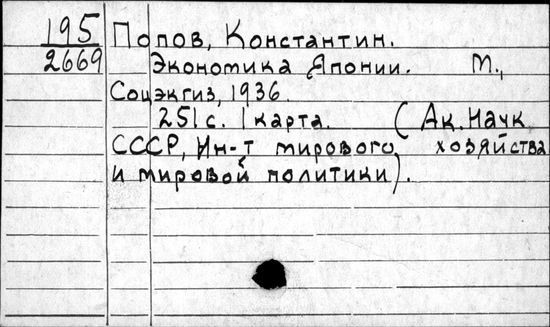 195 Попов, Константин.
2669 Экономика Японии. М.,
Соцэкгиз, 1936.
251 с. 1 карта. (Ак. Наук
СССР, Ин-т мирового хозяйства
и мировой политики).